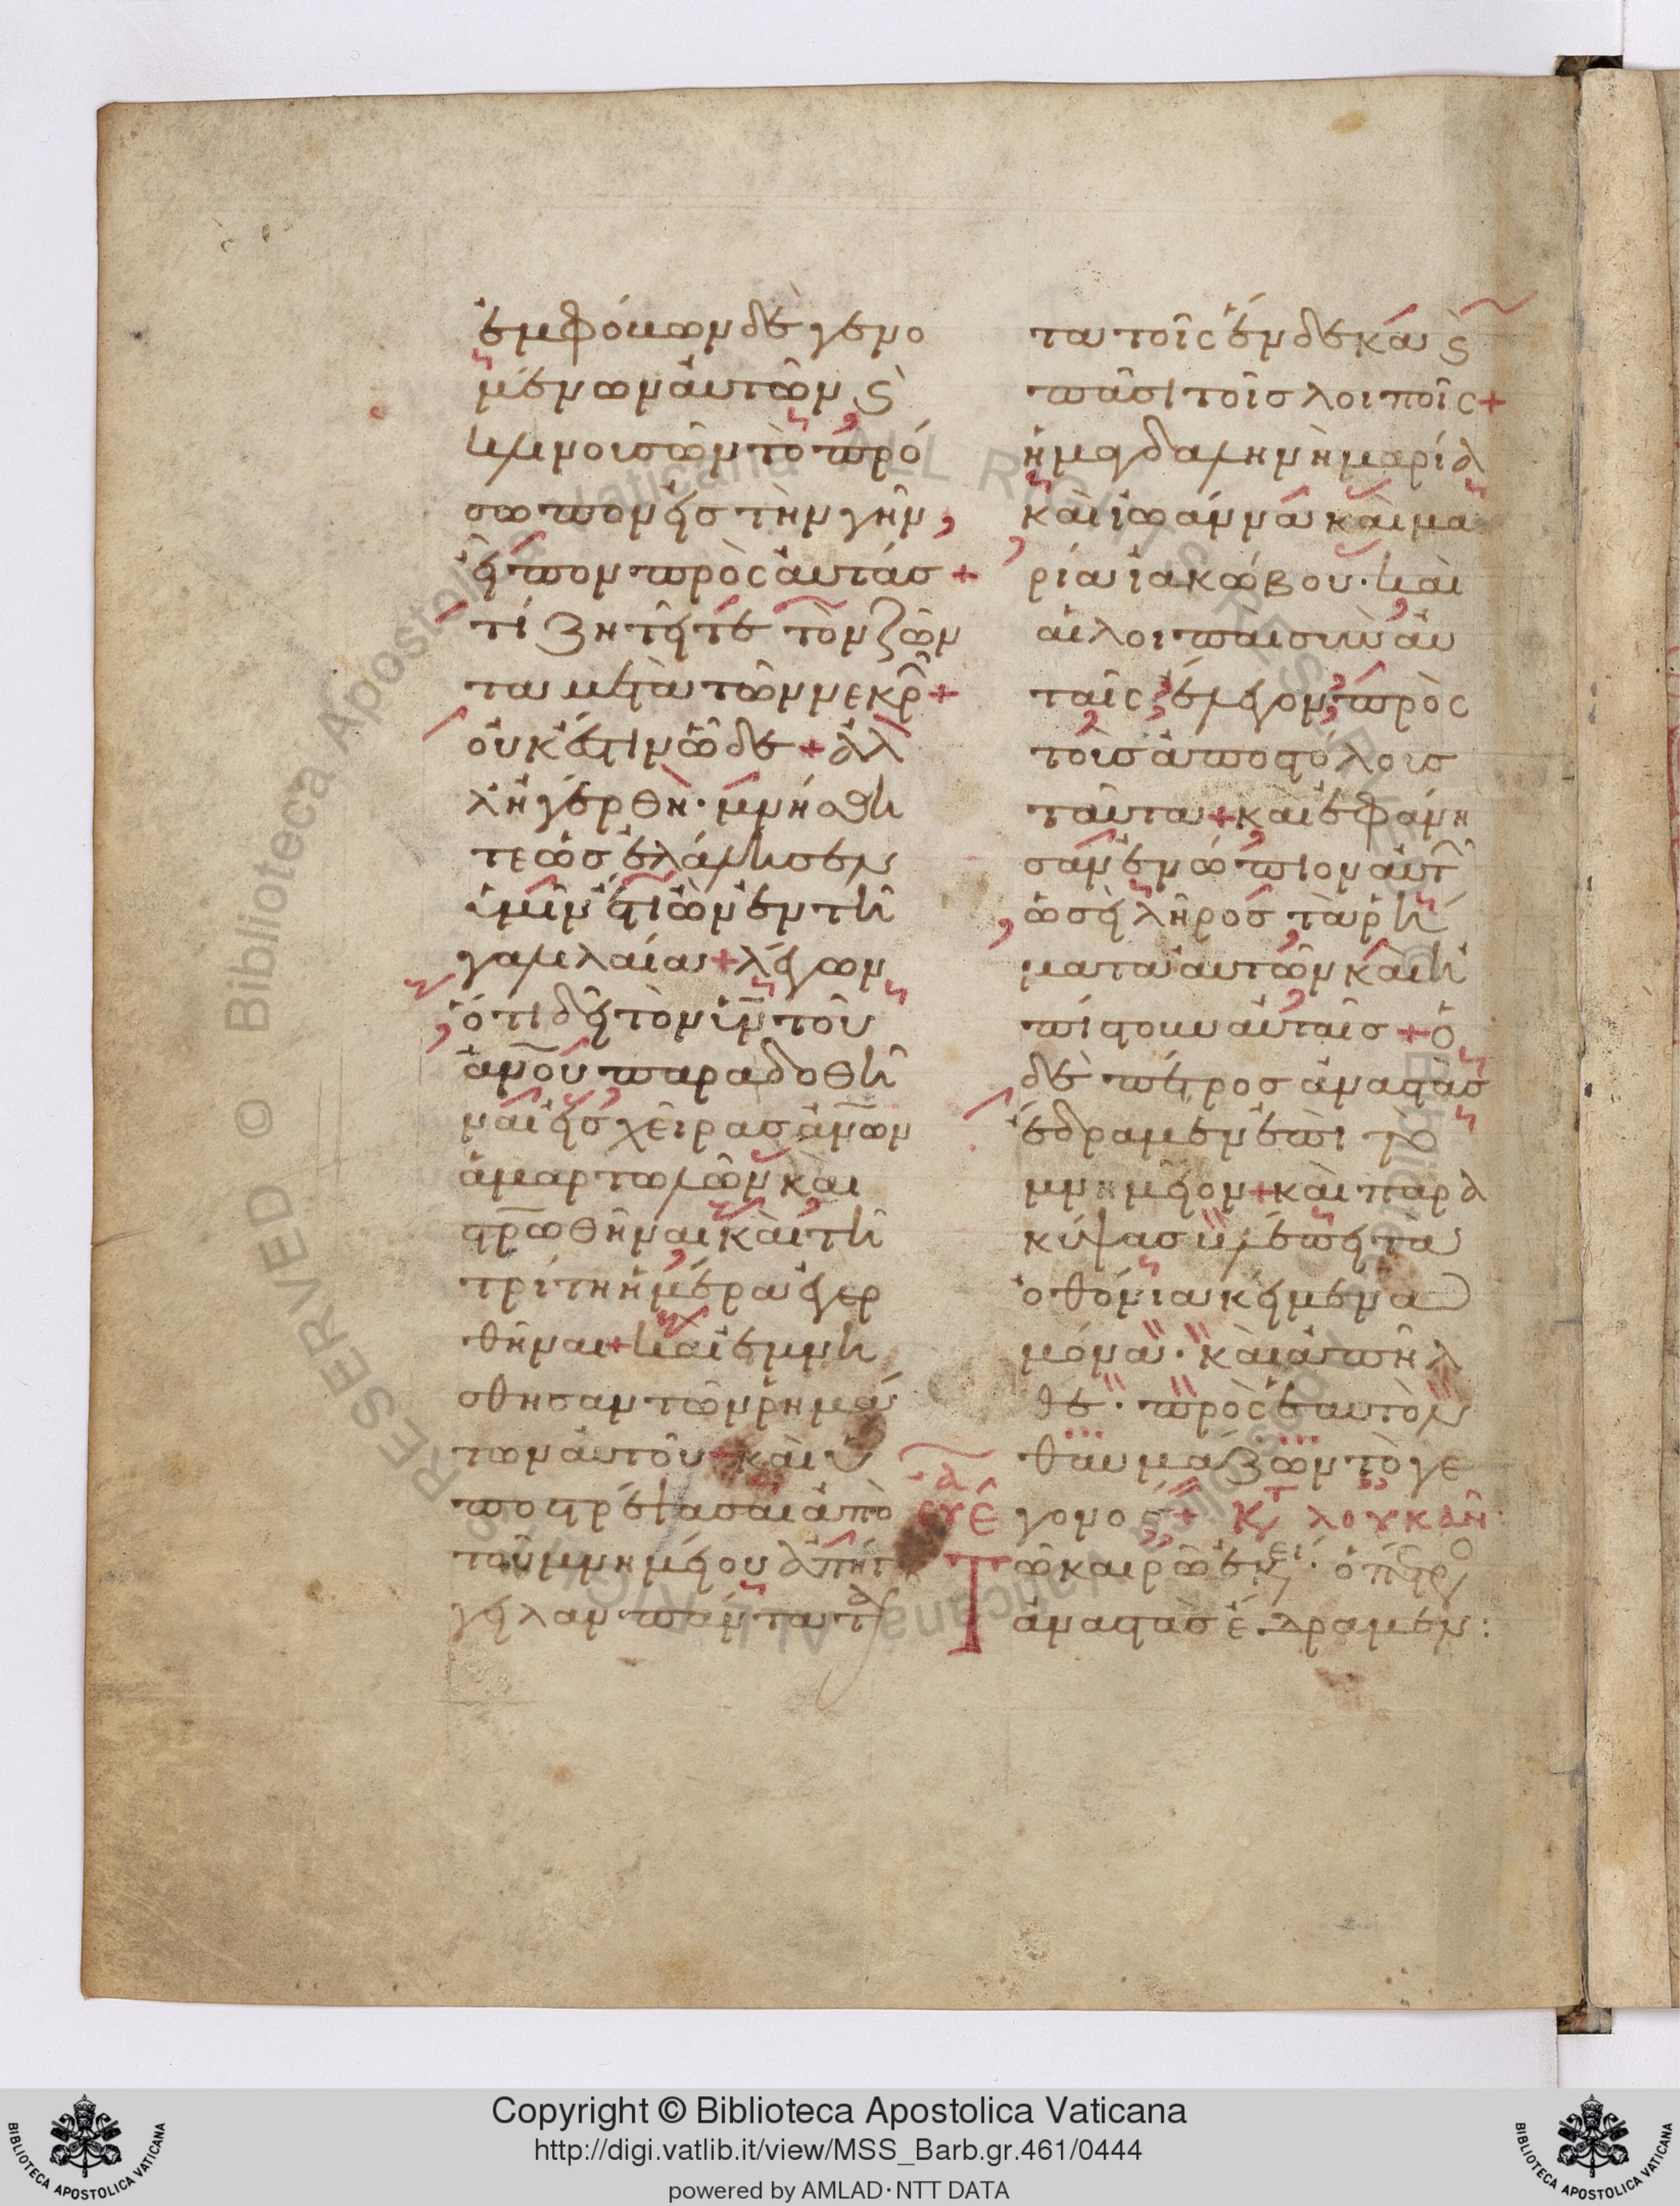 ἐμφόβων δὲ γενο
μένων αὐτῶν ϗ
κλινουσῶν τὸ πρό
σωπον εἰς τὴν γῆν,
εἶπον πρὸς αὐτάς +
τί ζητεῖτε τὸν ζῶν
τα μετὰ τῶν νεκρ̑ +
οὐκ ἔστιν ὧδε + ἀλ
λ' ἠγέρθη · μνήσθη
τε ὡς ἐλάλησεν
ὑμῖν ἔτι ὢν ἐν τῆ
γαλιλαία + λέγων
ὅτι δεῖ τὸν υ̅ν̅ τοῦ
ἀν̅ου παραδοθῆ
ναι εἰς χεῖρας ἀν̅ων
ἁμαρτωλῶν καὶ
στρ̅ωθῆναι καὶ τῆ
τρίτη ἡμέρα ἐγερ
θῆναι + καὶ ἐμνή
σθησαν τῶν ῥημά
των αὐτοῦ + καὶ ὑ
ποστρέψασαι ἀπὸ
τοῦ μνημείου ἀπήγ
γειλαν πάντα τα
τα τοῖς ἕνδεκα ϗ
πᾶσι τοῖς λοιποῖς +
ἡ μαγδαληνὴ μαρία
καὶ ἰωάννα καὶ μα
ρία ἰακώβου · καὶ
αἱ λοιπαὶ σὺν αὐ
ταῖς, ἔλεγον πρὸς
τοὺς ἀποστόλους
ταῦτα + καὶ ἐφάνη
σαν ἐνώπιον αὐτ̑
ὡσεὶ λῆρος τὰ ῥή
ματα αὐτῶν καὶ ἠ
πίστουν αὐταῖς + ὁ
δὲ πέτρος ἀναστὰς
ἔδραμεν ἐπὶ τὸ
μνημεῖον + καὶ παρα
κύψας βλέπει τὰ
ὀθόνια κείμενα
μόνα · καὶ ἀπῆλ
θε · πρὸς ἑαυτὸν
θαυμάζων τὸ γε
γονός + Κτ λουκᾶν ·
δ
ευε
Τῶ καιρῶ ἐκει · ὁ πετρο
ἀναστὰς ἔδραμεν :
Copyright © Biblioteca Apostolica Vaticana
http://digi.vatlib.it/view/MSS_Barb.gr.461/0444
powered by AMLAD·NTT DATA
BIBLIOTECA APOSTOLICA VATICANA
BIBLIOTECA APOSTOLICA VATICANA